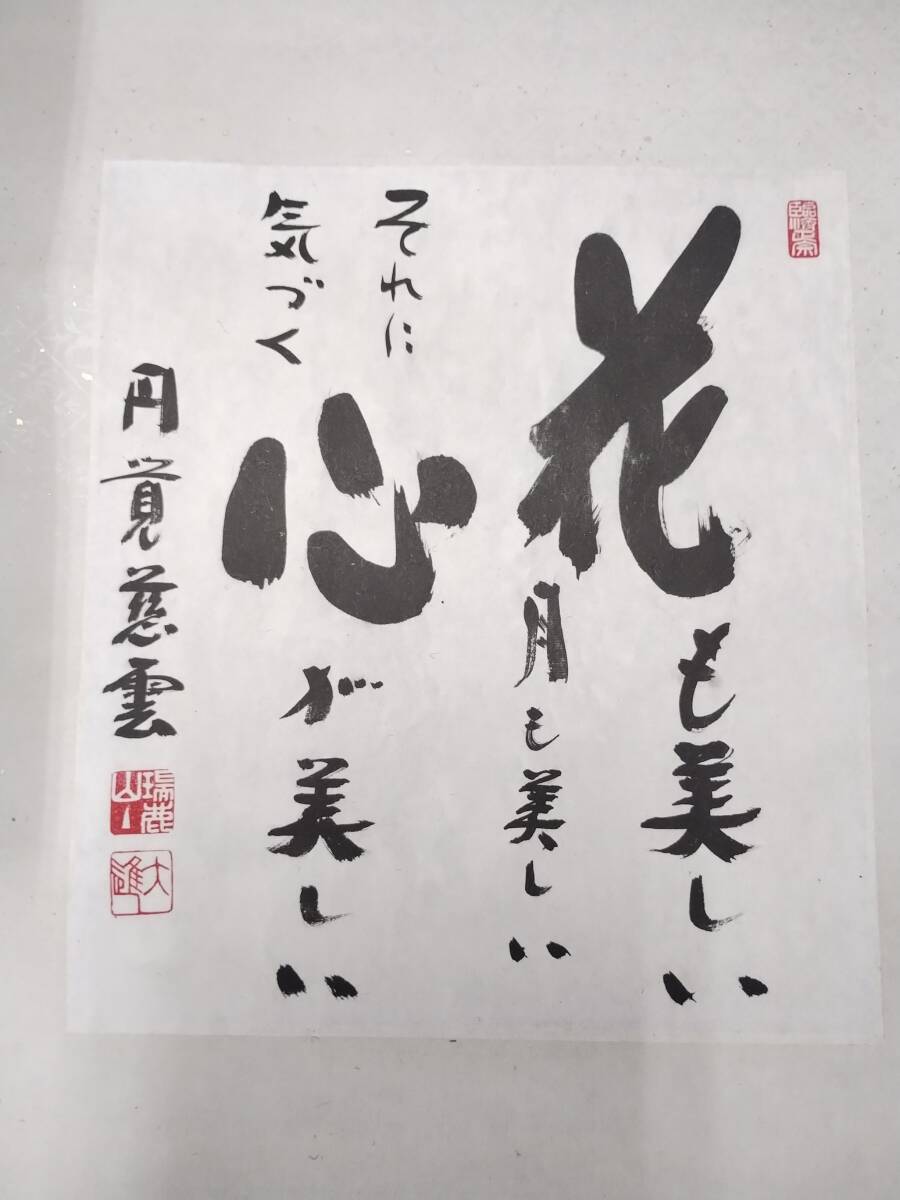 花も美しい
月も美しい
それに
気づく
心が美しい
円覚慈雲
瑞鹿山